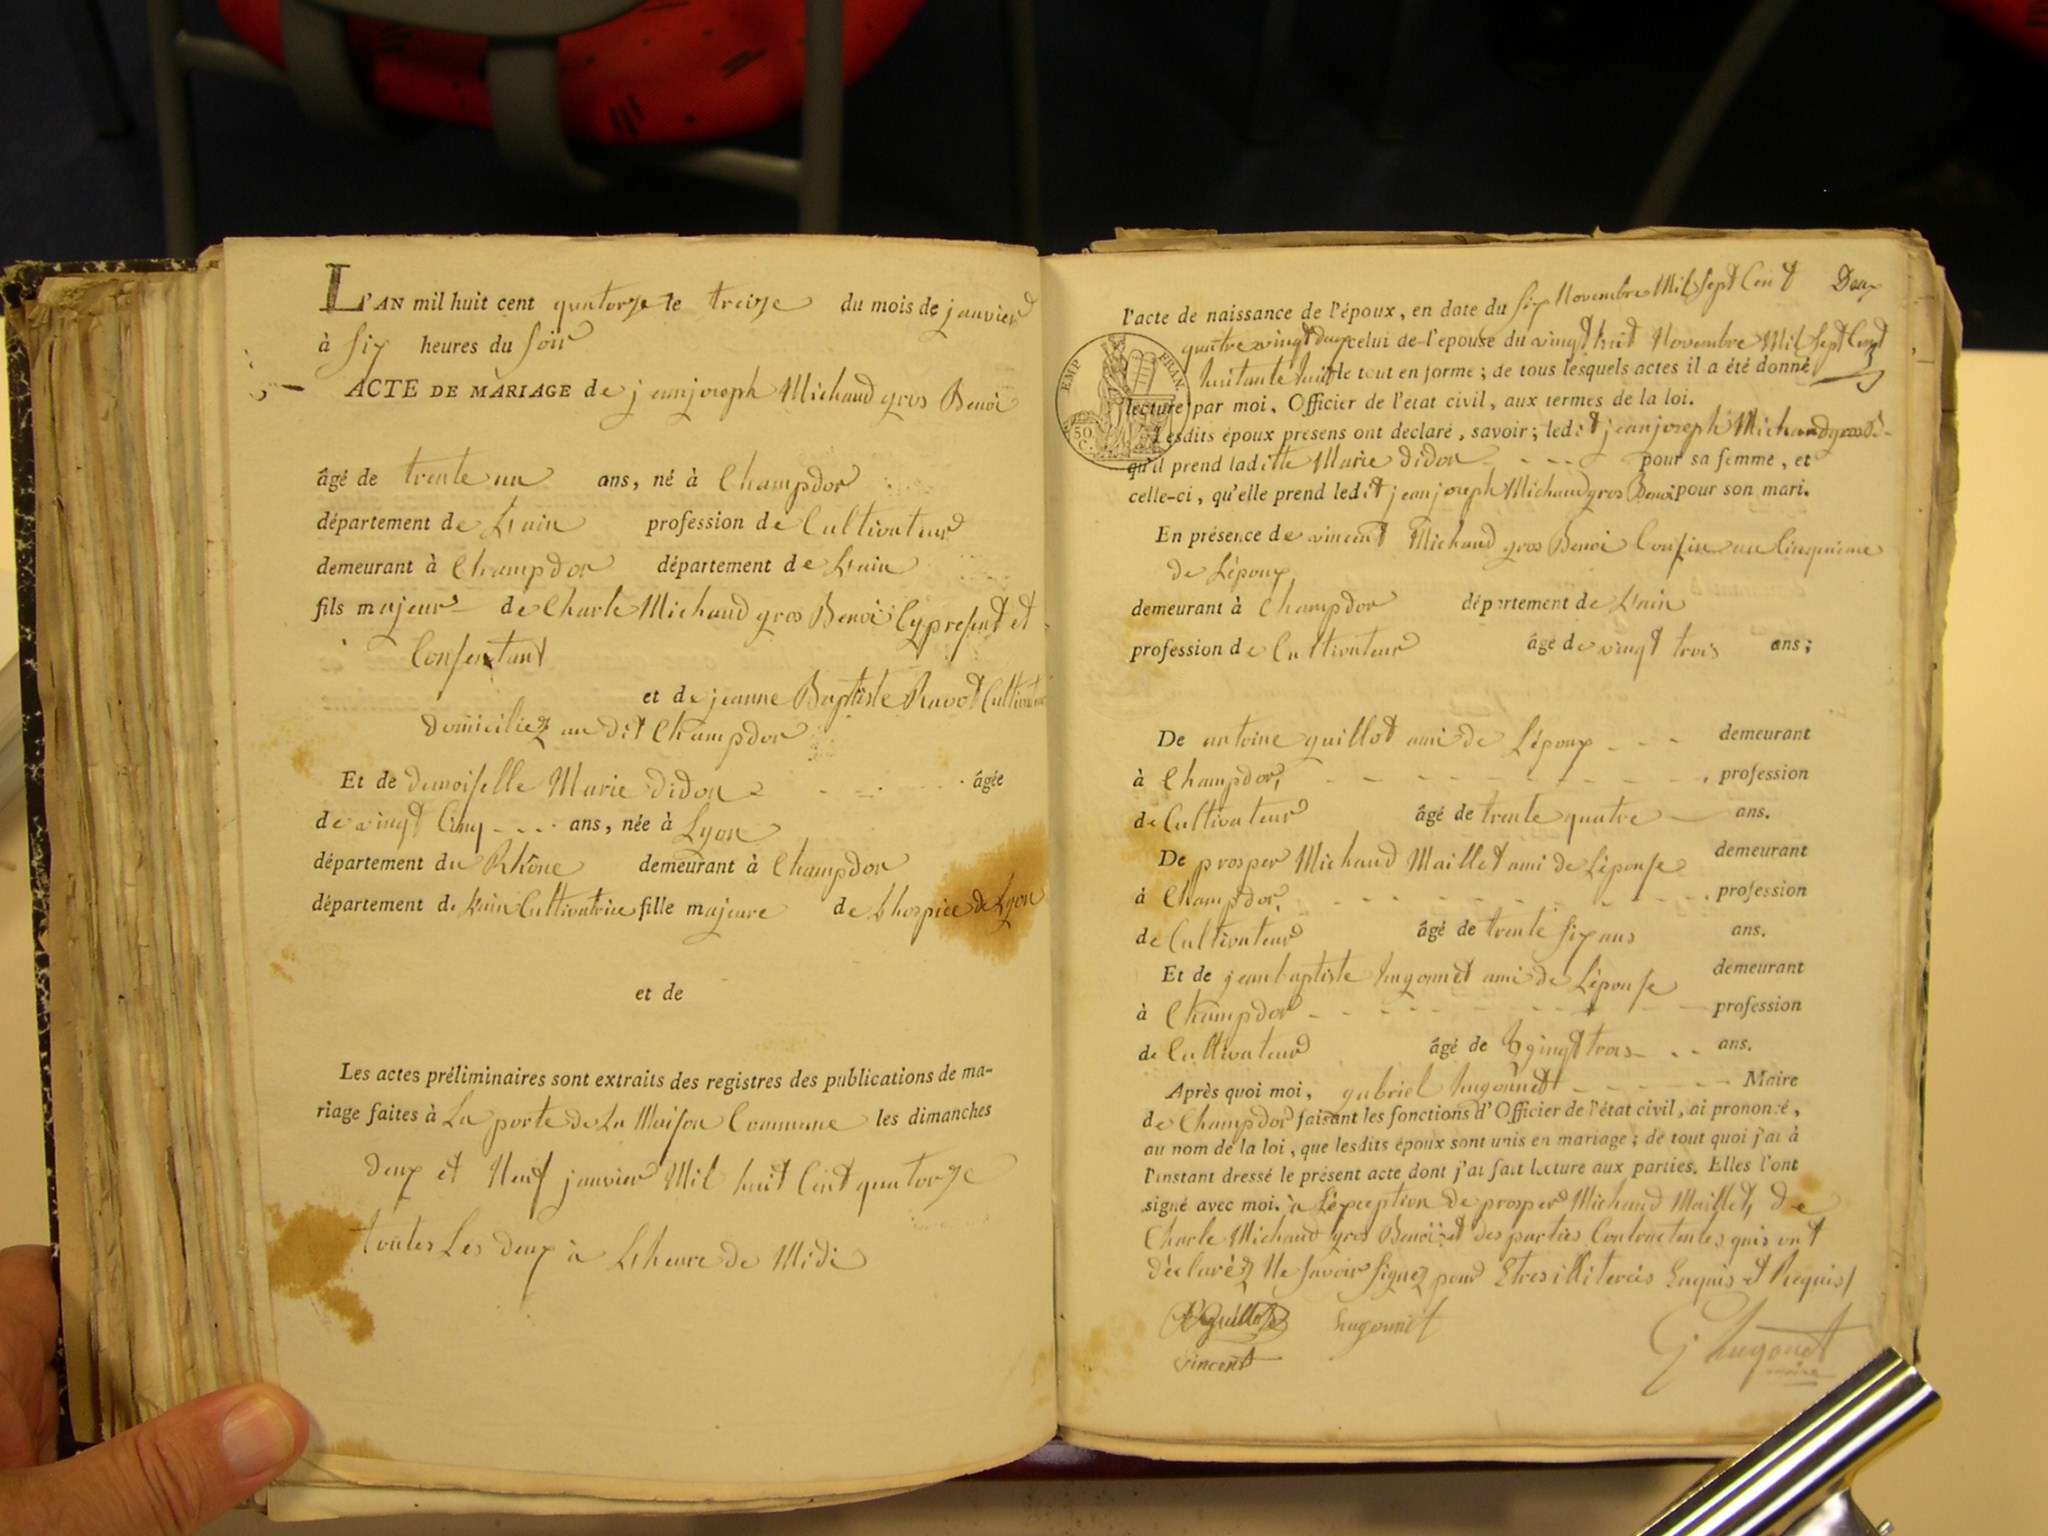 L'AN mil huit cent quatorze le treize du mois de janvier
à six heures du soir
ACTE DE MARIAGE de jeanjoseph Michaud gros Benoi
âgé de trente un ans, né à Champdor
département de Lain profession de Cultivateur
demeurant à Champdor département de Lain
fils majeur de Charle Michaud gros Benoi Cy present et
Consentant
et de jeanne Baptiste Ravot Cultivateur
domiciliez au dit Champdor
Et de demoiselle Marie didon âgée
de vingt Cinq ans, née à Lyon
département du Rhône demeurant à Champdor
département de Lain Cultivatrice fille majeure de Lhospice de Lyon
et de
Les actes préliminaires sont extraits des registres des publications de ma-
riage faites à La porte de La Maison Commune les dimanches
deux et Neuf janvier Mil huit Cent quatorze
toutes Les deux à Lheure de Midi
Deux
l'acte de naissance de l'époux, en date du six Novembre Mil Sept Cent
quatre vingt deux celui de l'epouse du vingt huit Novembre Mil Sept Cent
huitante huit le tout en forme ; de tous lesquels actes il a été donné
lecture par moi, Officier de l'état civil, aux termes de la loi.
EMP FRAN.
50 C.
Lesdits époux presens ont declaré, savoir ; ledit jeanjoseph Michaud gros
qu'il prend laditte Marie didon pour sa femme, et
celle-ci, qu'elle prend ledit jeanjoseph Michaud gros Benoi pour son mari.
En présence de vincent Michaud gros Benoi Cousin au Cinquieme
de Lépoux
demeurant à Champdor département de Lain
profession de Cultivateur âgé de vingt trois ans ;
De antoine guillot ami de Lépoux demeurant
à Champdor, profession
de Cultivateur âgé de trente quatre ans.
De prosper Michaud Maillet ami de Lépouse demeurant
à Champdor, profession
de Cultivateur âgé de trente six ans ans.
Et de jeanbaptiste hugonnet ami de Lépouse demeurant
à Champdor profession
de Cultivateur âgé de vingt trois ans.
Après quoi moi, gabriel hugonnet Maire
de Champdor faisant les fonctions d'Officier de l'état civil, ai prononcé,
au nom de la loi, que lesdits époux sont unis en mariage ; de tout quoi j'ai à
l'instant dressé le présent acte dont j'ai fait lecture aux parties. Elles l'ont
signé avec moi. à Léxception de prosper Michaud Maillet, de
Charle Michaud gros Benoi et des parties Contractentes quis ont
déclaréz Ne savoir signez pour Etres illiterés Enquis et Requis
Guillot hugonnet G. hugonet
vincent maire